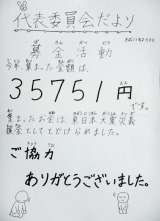 代表委員会だより
募金活動
今年集まった金額は、
35751円
です。
集まったお金は、東日本大震災義
援金として
ご協力
ありがとうございました。